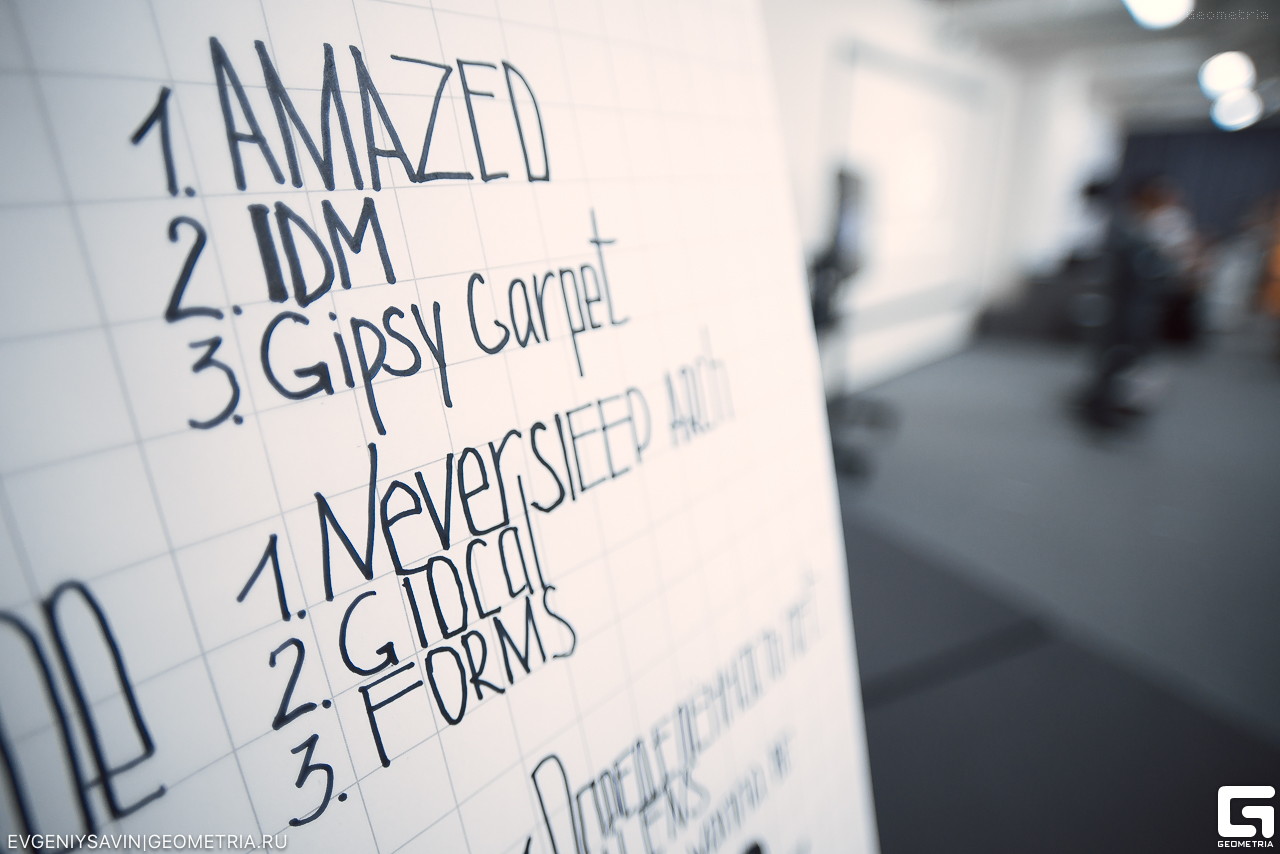 geometria
1. AMAZED
2. IDM
3. Gipsy Carpet
1. Neversleep ARCh
2. Glocal
3. FORMS
EVGENIYSAVIN|GEOMETRIA.RU
GEOMETRIA